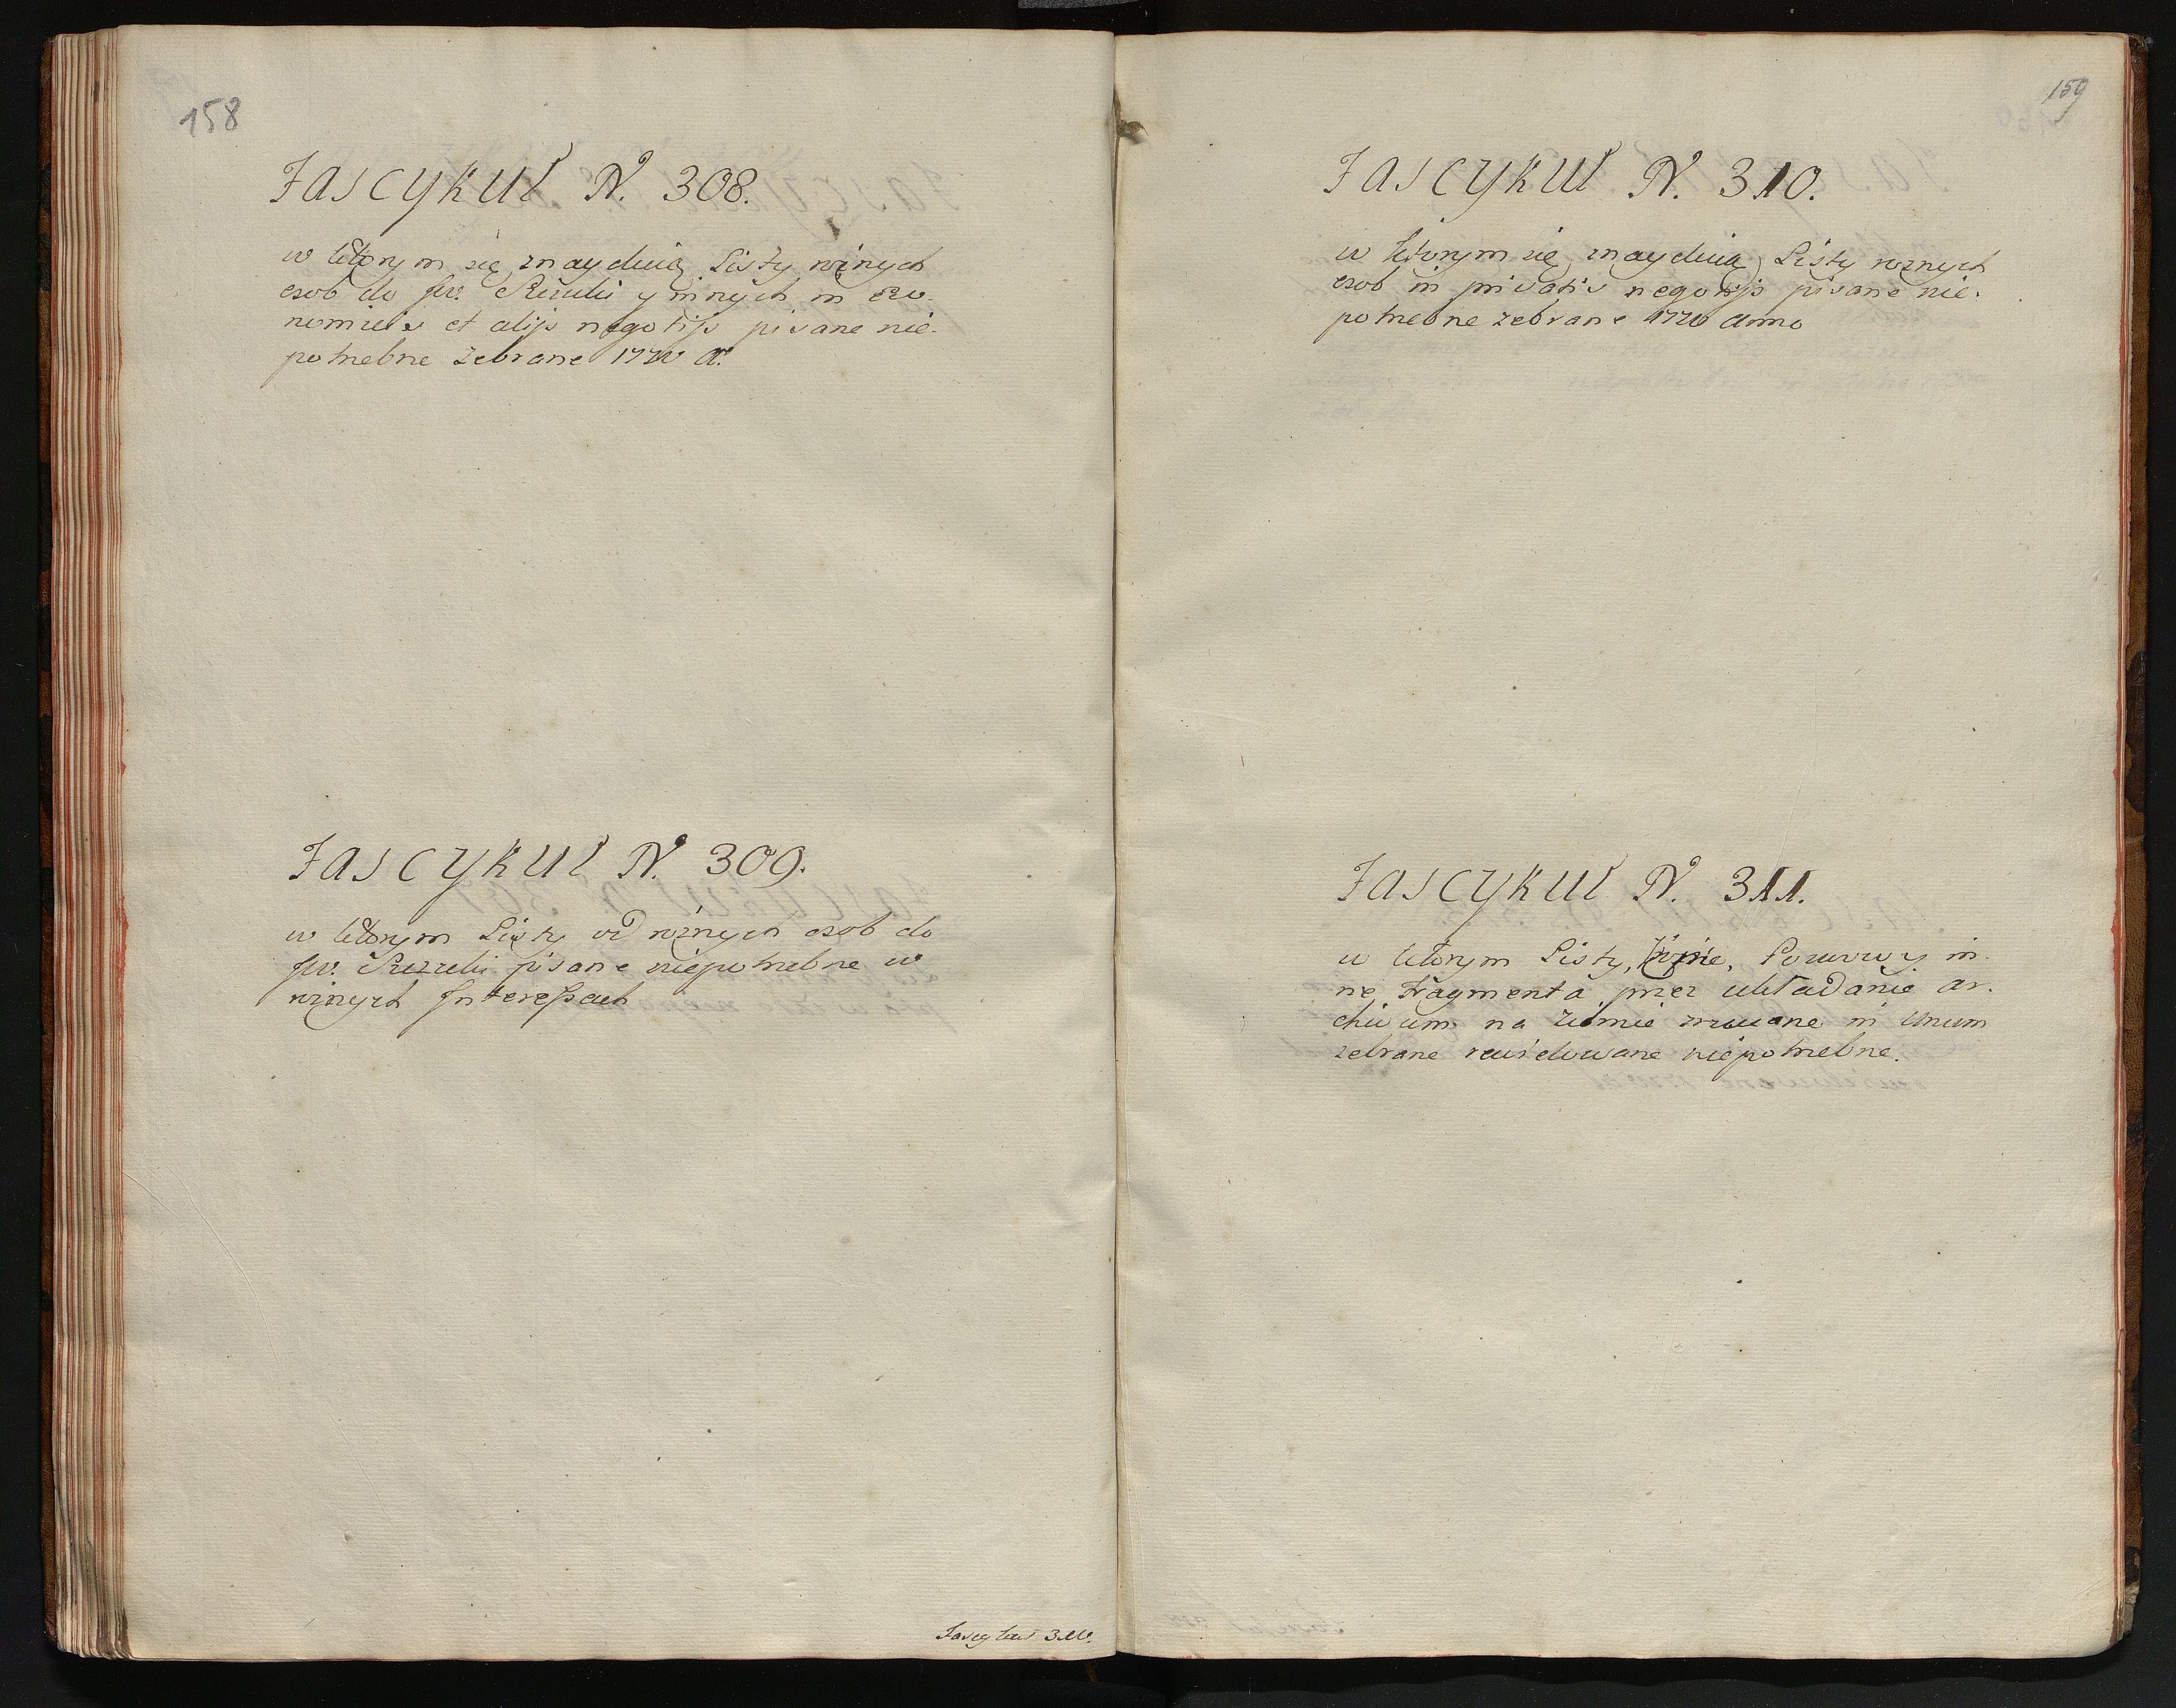 158
Fascykuł N. 308.
w ktorym się znayduią Listy rożnych
osob do Jw. y innych in Eko-
nomicis et alijs negotijs pisane nie-
potrzebne zebrane A.
Fascykuł N. 309.
w ktorym Listy od rożnych osob do
Jw. pisane niepotrzebne w
rożnych Interessach
Fascykuł 310.
159
Fascykuł N. 310.
w ktorym się znayduią Listy rożnych
osob in privatis negotijs pisane nie-
potrzebne zebrane Anno
Fascykuł N. 311.
w ktorym Listy, Kopie, y in-
ne Fragmenta przez układanie Ar-
chivum na ziemię in unum
zebrane rewidowane niepotrzebne.